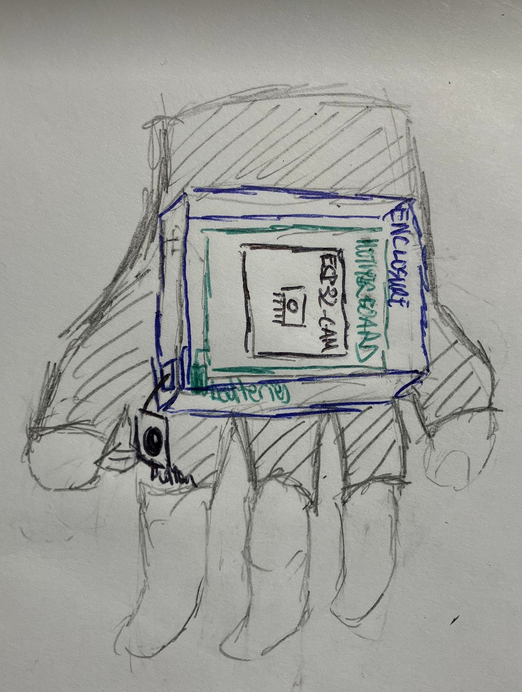 ENCLOSURE
MOTHERBOARD
ESP32-CAM
Button